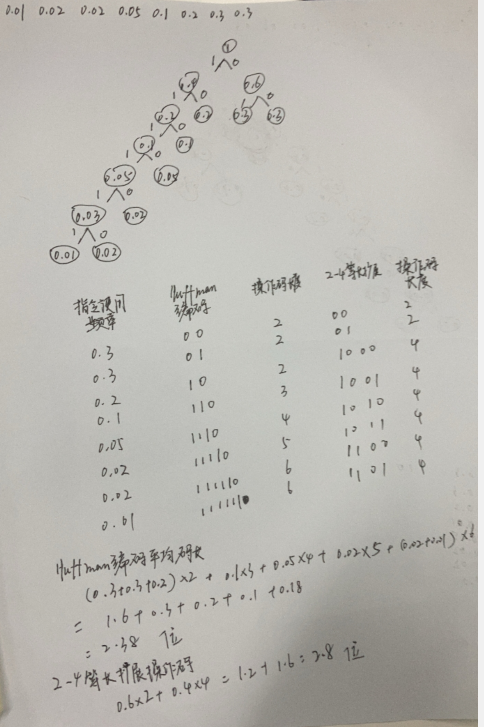 0.01 0.02 0.02 0.05 0.1 0.2 0.3 0.3
1
1 0
0.4 0.6
1 0 1 0
0.2 0.2 0.3 0.3
1 0
0.1 0.1
1 0
0.05 0.05
1 0
0.03 0.02
1 0
0.01 0.02
指令使用频率 Huffman编码 操作码长度 2-4等长扩展 操作码长度
0.3 00 2 00 2
0.3 01 2 01 2
0.2 10 2 1000 4
0.1 110 3 1001 4
0.05 1110 4 1010 4
0.02 11110 5 1011 4
0.02 111110 6 1100 4
0.01 111111 6 1101 4
Huffman编码平均码长
(0.3+0.3+0.2)×2 + 0.1×3 + 0.05×4 + 0.02×5 + (0.02+0.01)×6
= 1.6+0.3+0.2+0.1+0.18
= 2.38 位
2-4等长扩展操作码
0.6×2+0.4×4 = 1.2+1.6=2.8 位